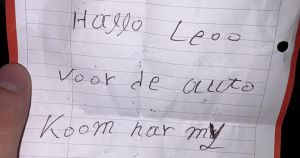 Hallo Leoo
voor de auto
Koom nar my